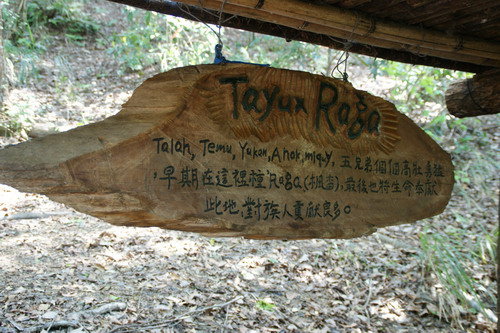 Tayux Raga
Talah, Temu, Yukan, Anak, miquy, 五兄弟個個高壯勇猛
,早期在這裡種Raga(楓香),最後也將生命奉獻
此地對族人貢獻良多。